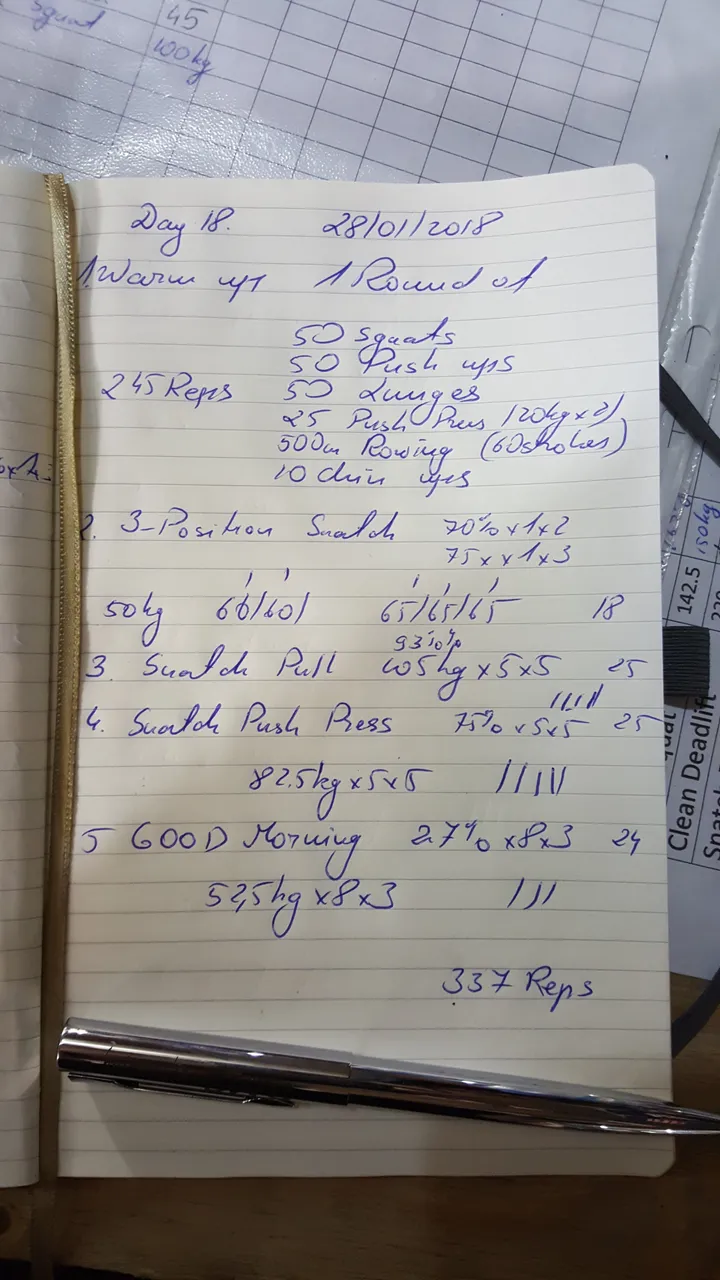 Squat 45
100kg
Day 18. 28/01/2018
1. Warm up 1 Round of
50 Squats
50 Push ups
245 Reps 50 Lunges
25 Push Press (20kg x 2)
500m Rowing (60 strokes)
10 chin ups
2. 3-Position Snatch 70% x 1 x 2
75 x x 1 x 3
50kg 60/60/ 65/65/65 18
93%
3. Snatch Pull 105kg x 5 x 5 25
4. Snatch Push Press 75% x 5 x 5 25
82.5kg x 5 x 5
5 GOOD Morning 27% x 8 x 3 24
52,5kg x 8 x 3
337 Reps
150kg
142.5
Clean Deadlift